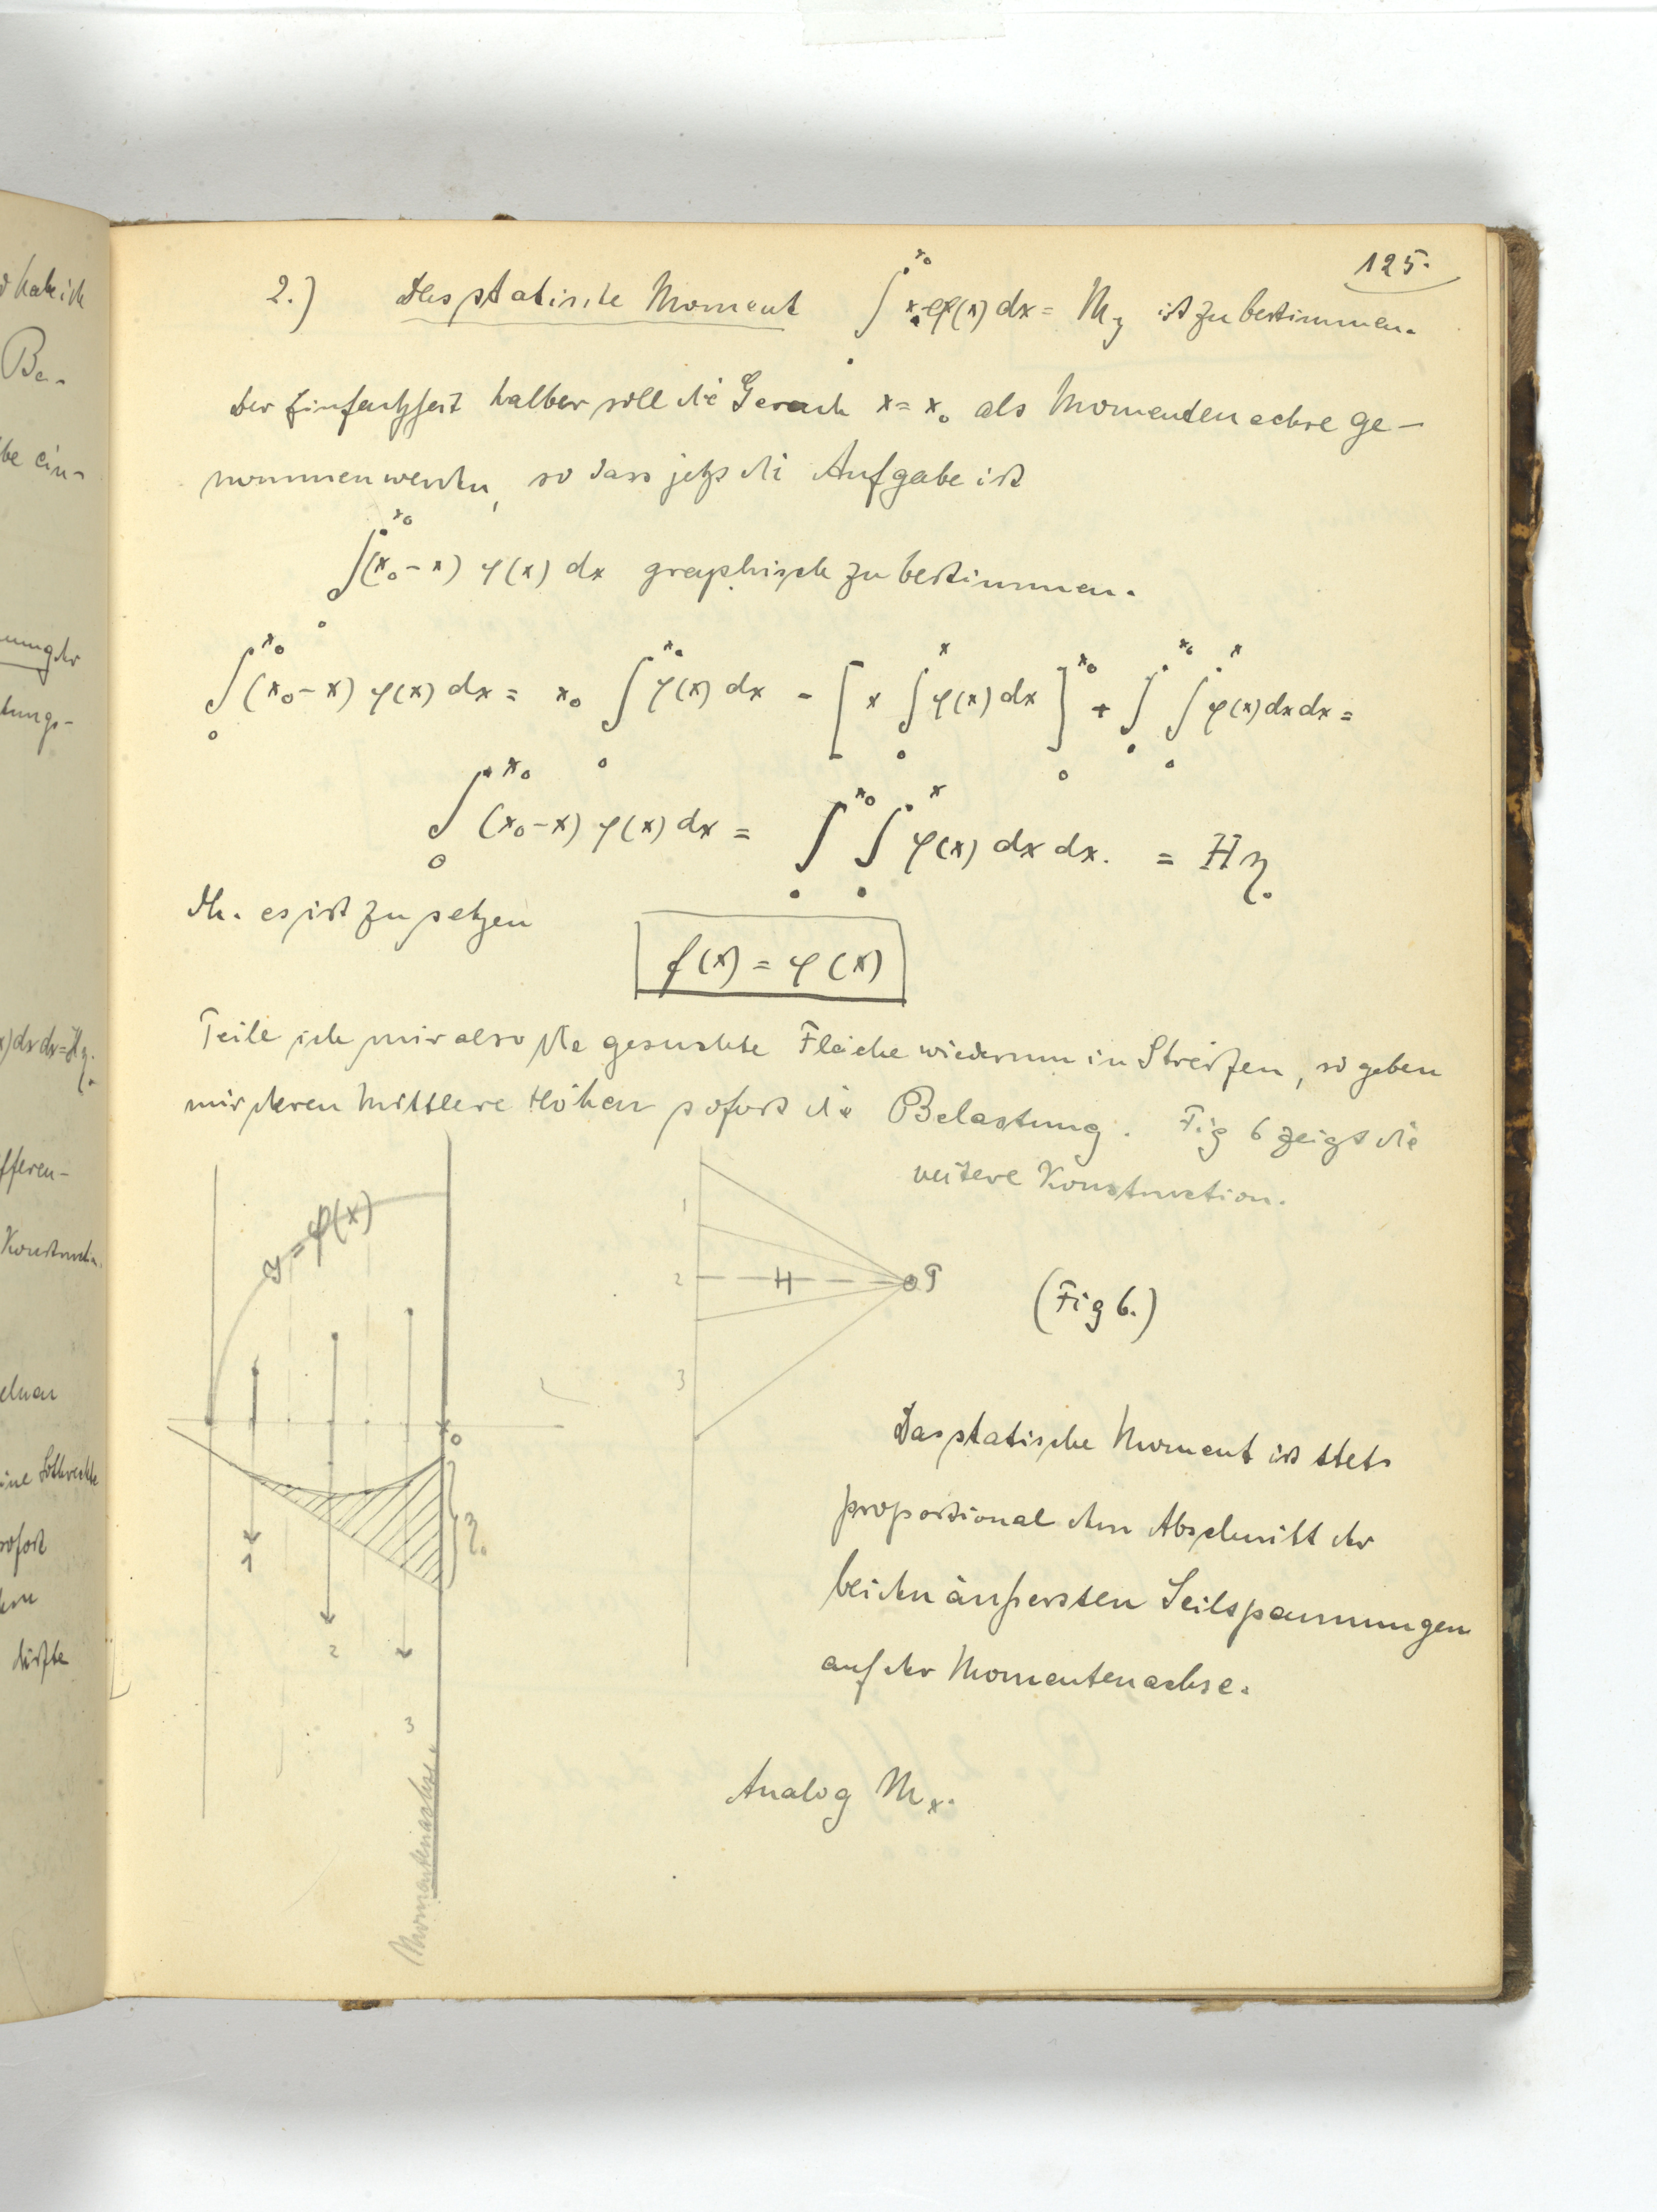 125.
2.) Das statische Moment ∫₀^{x₀} x·φ(x) dx = M_y ist zu bestimmen.
Der Einfachheit halber soll die Gerade x = x₀ als Momentenachse ge-
nommen werden, so dass jetzt die Aufgabe ist
∫₀^{x₀} (x₀ - x) φ(x) dx graphisch zu bestimmen.
∫₀^{x₀} (x₀ - x) φ(x) dx = x₀ ∫₀^{x₀} φ(x) dx - [x ∫₀^{x} φ(x) dx]₀^{x₀} + ∫₀^{x₀} ∫₀^{x} φ(x) dx dx =
∫₀^{x₀} (x₀ - x) φ(x) dx = ∫₀^{x₀} ∫₀^{x} φ(x) dx dx. = H η.
dh. es ist zu setzen
f(x) = φ(x)
Teile ich mir also die gesuchte Fläche wiederum in Streifen, so geben
mir deren mittlere Höhen sofort die Belastung. Fig 6 zeigt die
weitere Konstruction.
y = φ(x)
1
2
H
P
3
(Fig 6.)
x₀
η.
1
2
3
Momentenachse.
Das statische Moment ist stets
proportional dem Abschnitt der
beiden äußersten Seilspannungen
auf der Momentenachse.
Analog M_x.